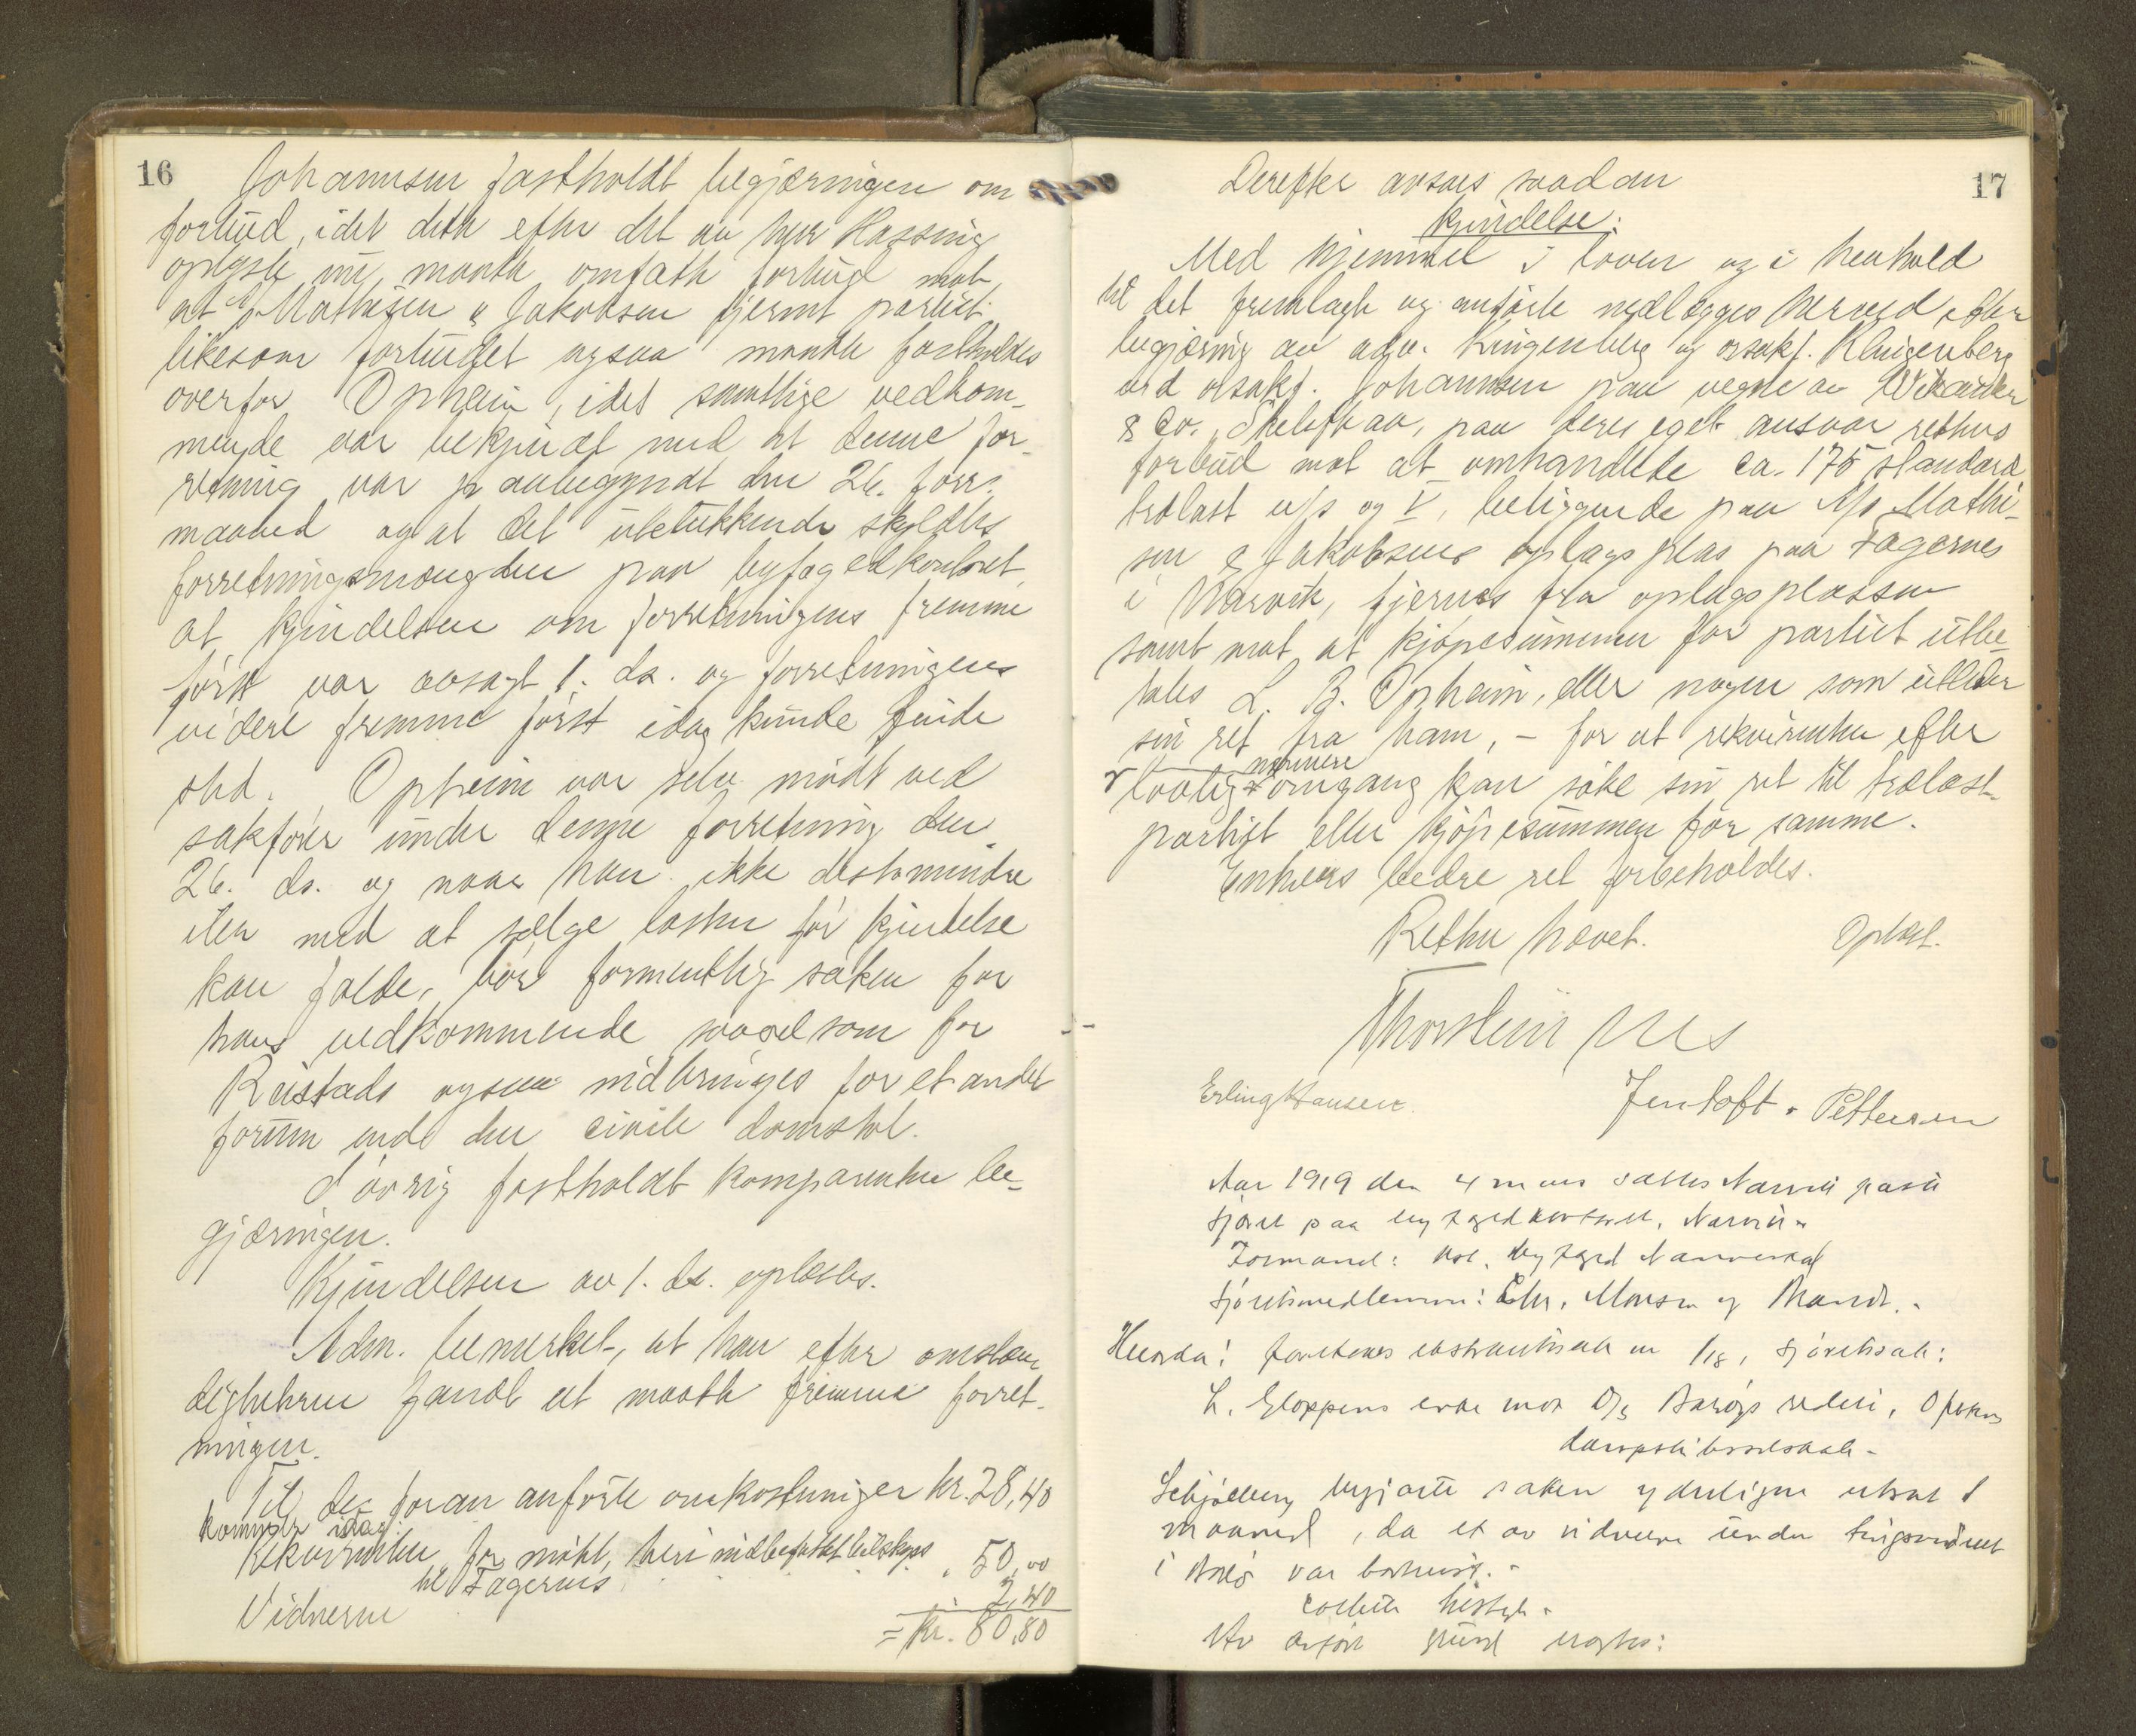 16
Johannsen fastholdt begjæringen om
forbud, idet dette efter det av herr Kassing
oplyste nu maatte omfatte forbud mot
at A/S Mathisen & Jakobsen fjernet partiet
likesom forbudet ogsaa maatte fastholdes
overfor Opheim, idet samtlige vedkom-
mende var bekjendt med at denne for-
retning var paabegyndt den 26. forr.
maaned og at det utelukkende skyldtes
forretningsmængden paa byfogedkontoret,
at kjendelsen om forretningens fremme
først var avsagt 1. ds. og forretningens
videre fremme først idag kunde finde
sted. Opheim var selv møtt ved
sakfører under denne forretning den
26. ds. og naar han ikke destomindre
iler med at sælge lasten før kjendelse
kan falde, bør formentlig saken for
hans vedkommende saavel som for
Reistads ogsaa indbringes for et andet
forum end den civile domstol.
I øvrig fastholdt komparenten be-
gjæringen.
Kjendelsen av 1. ds. oplæstes.
Adm. bemerket, at han efter omstæn-
dighetene fandt at maatte fremme forret-
ningen.
Til de foran anførte omkostninger kr. 28,40
kommer idag:
Rekvirenten for møtet, heri indbefattet bilskyss
til Fagernes " 50,00
Vidnerne " 2,40
= Kr. 80,80
17
Derefter avsaes saadan
kjendelse:
Med hjemmel i loven og i henhold
til det fremlagte og anførte nedlægges herved efter
begjæring av adv. Klingenberg og orsakf. Klingenberg
ved orsakf. Johannsen paa vegne av Wikander
& Co., Skelefteaa, paa deres eget ansvar rettens
forbud mot at omhandlede ca. 175 standard
trælast u/s og V, beliggende paa A/S Mathi-
sen & Jakobsens oplagsplas paa Fagernes
i Narvik, fjernes fra oplagsplassen
samt mot at kjøpesummen for partiet utbe-
tales L. B. Opheim, eller nogen som utleder
sin ret fra ham, – for at rekvirenten efter
nærmere
lovlig omgang kan søke sin ret til trælast-
partiet eller kjøpesummen for samme.
Enhvers bedre ret forbeholdes.
Retten hævet. Oplæst.
Thorstein Nes
Erling Hansen. Jentoft Pettersen
Aar 1919 den 4 mars sattes Narvik faste
sjøret paa byfogedkontoret, Narvik.
Formand: kst. byfoged
Sjøretsmedlemmer: Chr. Monsen og
Hvorda: foretokes ekstraretssak nr 1/18, sjøretssak:
L. Gloppens enke mot D/S rederi,
dampskibsselskab.
Schjølberg begjærte saken ydeligere utsat 1
maaned, da et av vidnene under tingsvidnet
i var bortreist.
Av anført grund